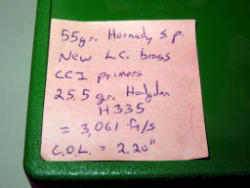 55gr. Hornady S.P.
New L.C. brass
CCI primers
25.5 gr. Hodgdon
H335
= 3,061 ft/s
C.O.L. = 2.20"